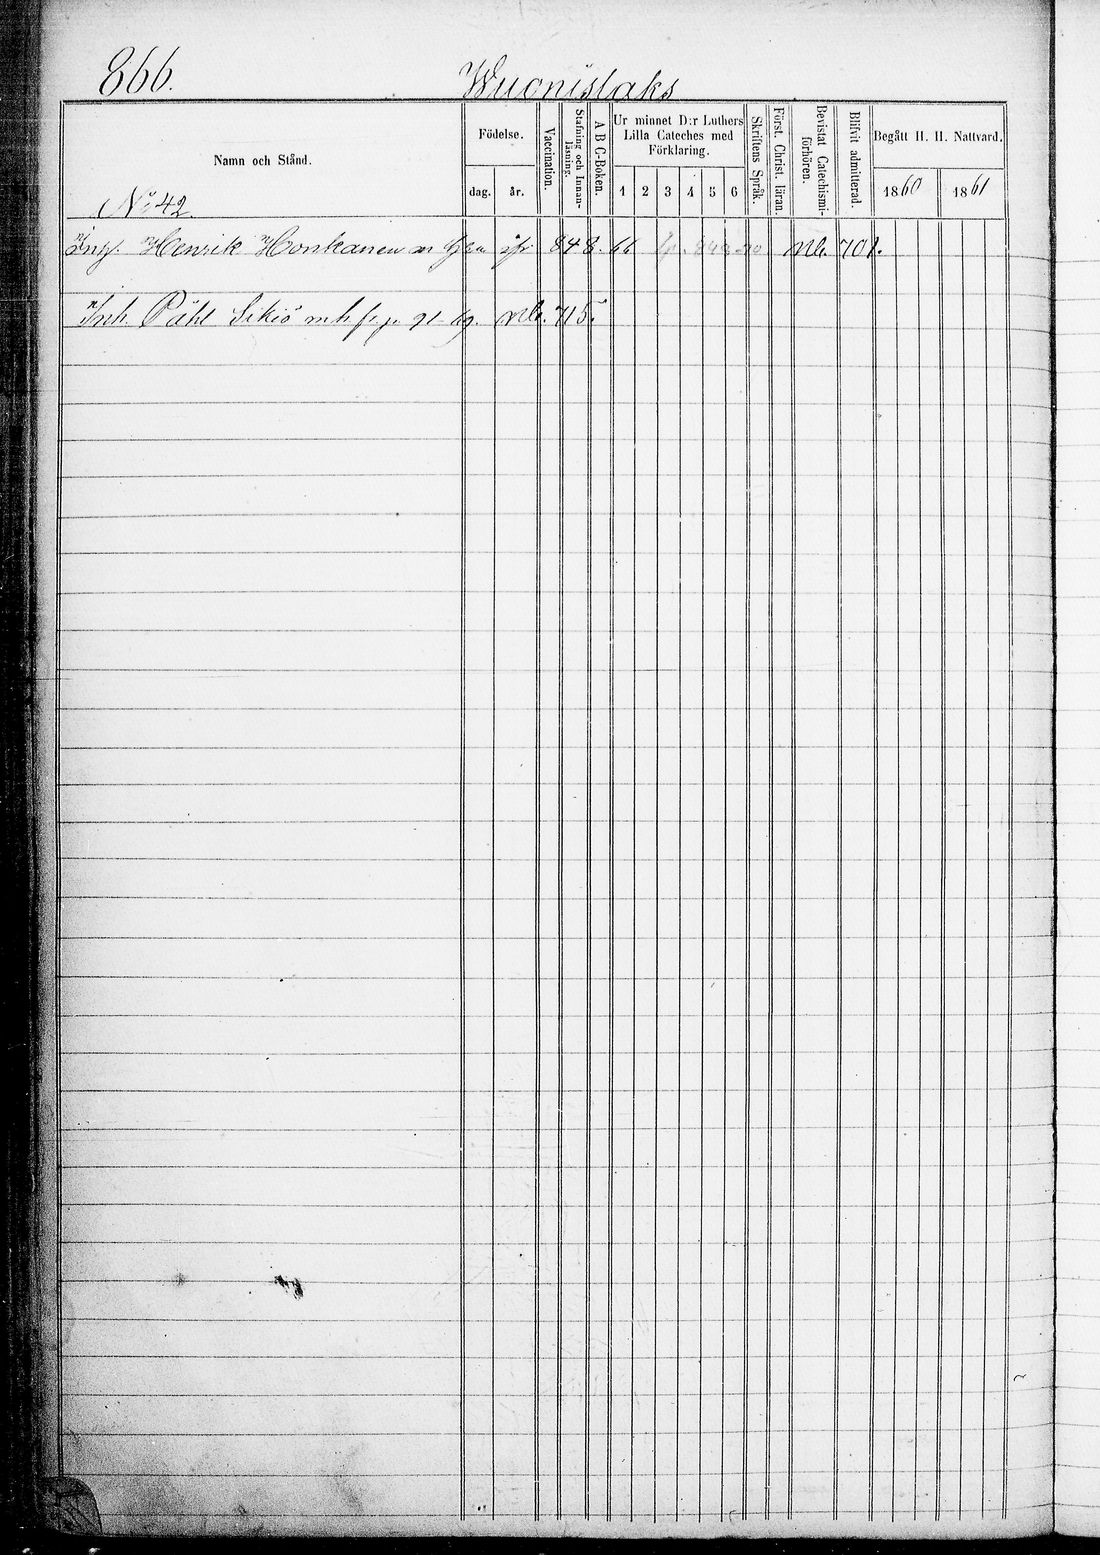 866.
Wuonislaks
Namn och Stånd.
Födelse.
dag.
år.
Vaccination.
Stafning och Innan-
läsning.
A B C-Boken.
Ur minnet D:r Luthers
Lilla Cateches med
Förklaring.
1 2 3 4 5 6
Skriftens Språk.
Först. Christ. läran.
Bevistat Catechismi-
förhören.
Blifvit admitterad.
Begått H. H. Nattvard.
1860
1861
No 42
Henrik Honkanen 848. 66 701.
Inh. Påhl 715.